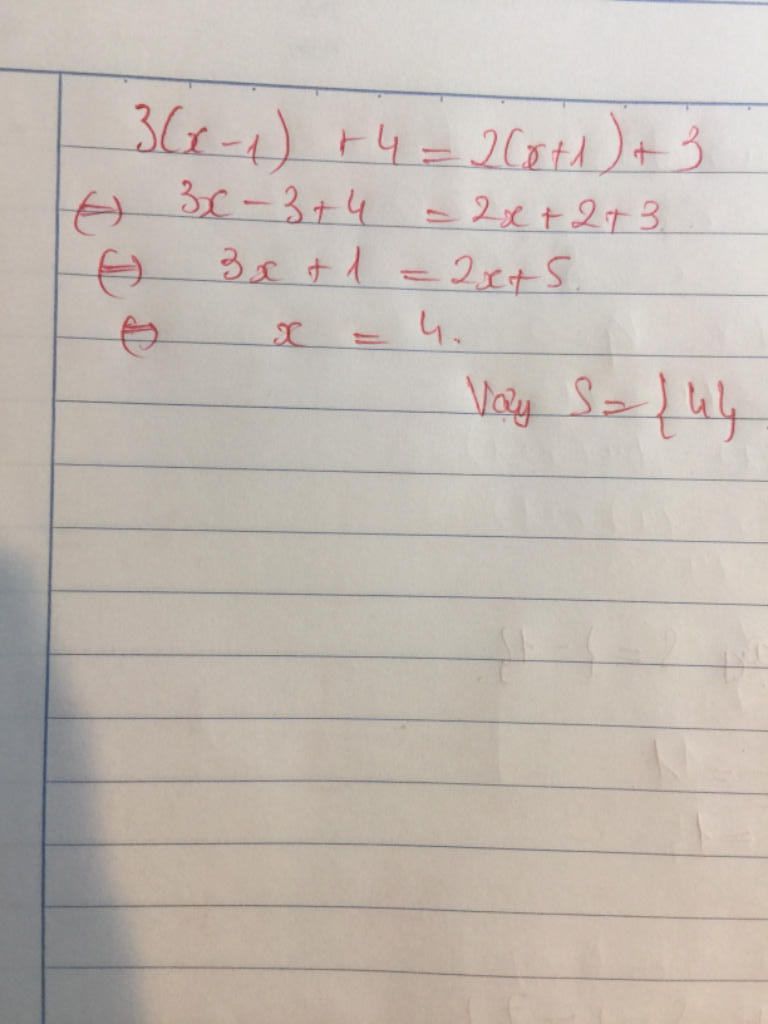 3(x-1) + 4 = 2(x+1) + 3
⇔ 3x - 3 + 4 = 2x + 2 + 3
⇔ 3x + 1 = 2x + 5.
⇔ x = 4.
Vậy S = {4}.